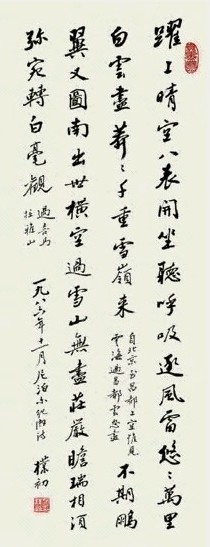 躍上晴空八表開坐聽呼吸逐風雷悠〻萬里
白雲盡莽〻千重雪嶺来
自北京至昌都上空惟見
雲海過昌都雲忽盡
不期鵬
翼又圖南出世橫空過雪山無盡莊嚴瞻瑞相須
弥宛轉白毫觀
過喜馬
拉雅山
一九八六年十一月尼泊尔紀游詩
樸初